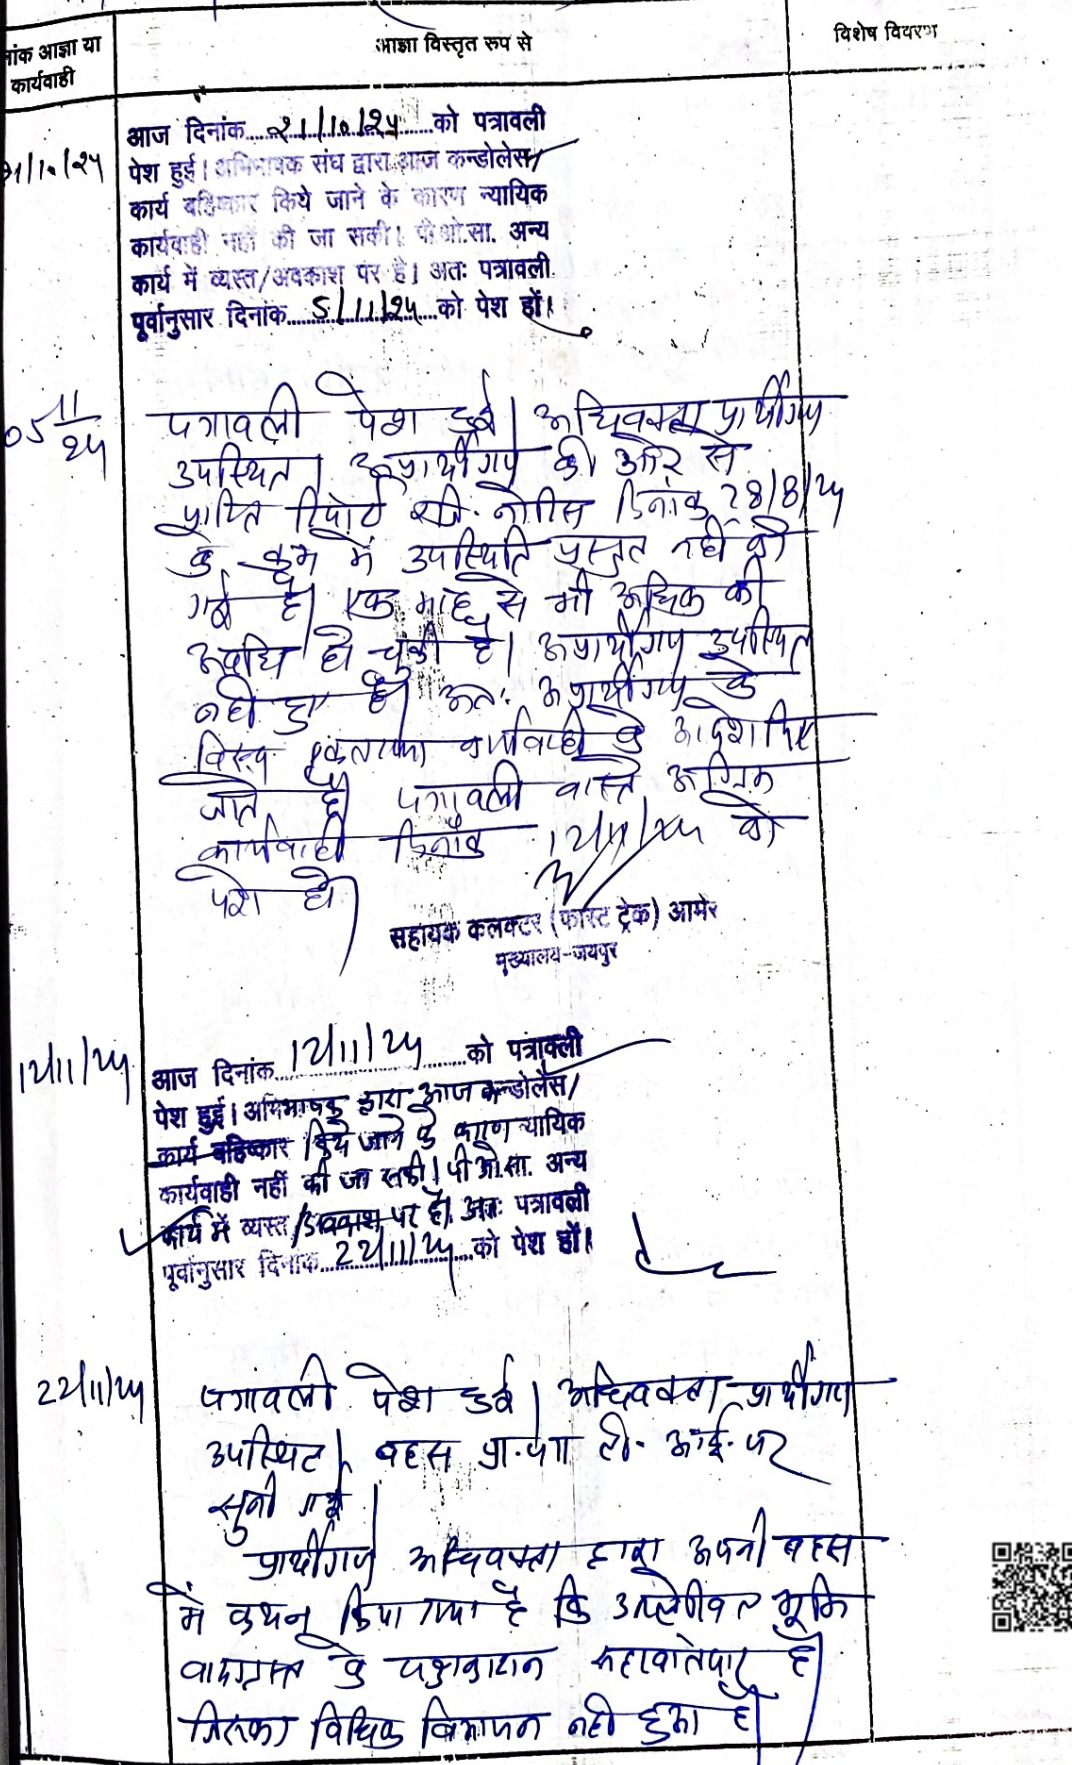 नांक आज्ञा या
कार्यवाही
आज्ञा विस्तृत रूप से
विशेष विवरण
21/10/24
आज दिनांक....21/10/24....को पत्रावली
पेश हुई। अभिभाषक संघ द्वारा आज कन्डोलेस/
कार्य बहिष्कार किये जाने के कारण न्यायिक
कार्यवाही नहीं की जा सकी। पी.ओ.सा. अन्य
कार्य में व्यस्त/अवकाश पर है। अतः पत्रावली
पूर्वानुसार दिनांक....5/11/24....को पेश हों।
05 11/24
पत्रावली पेश हुई। अधिवक्ता प्रार्थीगण
उपस्थित। अप्रार्थीगण की ओर से
प्राप्ति रिपोर्ट रजि. नोटिस दिनांक 28/8/24
के क्रम में उपस्थिति प्रस्तुत नहीं की
गई है। एक माह से भी अधिक की
अवधि हो चुकी है। अप्रार्थीगण उपस्थित
नही हुए है। अतः अप्रार्थीगण के
विरूद्ध एकतरफा कार्यवाही के आदेश दिए
जाते है। पत्रावली वास्ते अग्रिम
कार्यवाही दिनांक 12/11/24 को
पेश हो।
सहायक कलक्टर (फास्ट ट्रेक) आमेर
मुख्यालय-जयपुर
12/11/24
आज दिनांक....12/11/24....को पत्रावली
पेश हुई। अभिभाषक द्वारा आज कन्डोलेंस/
कार्य बहिष्कार किये जाने के कारण न्यायिक
कार्यवाही नहीं की जा सकी। पी.ओ.सा. अन्य
कार्य में व्यस्त/अवकाश पर है। अतः पत्रावली
पूर्वानुसार दिनांक....22/11/24....को पेश हों।
22/11/24
पत्रावली पेश हुई। अधिवक्ता प्रार्थीगण
उपस्थित। बहस प्रा.पत्र टी. आई. पर
सुनी गई।
प्रार्थीगण अधिवक्ता द्वारा अपनी बहस
में कथन किया गया है कि उल्लेखित भूमि
वादग्रस्त के पक्षकारान सहखातेदार है।
जिसका विधिक विभाजन नही हुआ है।